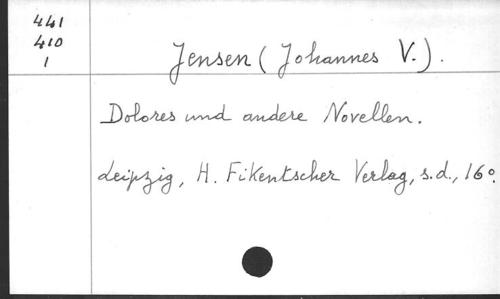 441
410
1
Jensen (Johannes V.).
Dolores und andere Novellen.
Leipzig, H. Fikentscher Verlag, s.d., 16º.